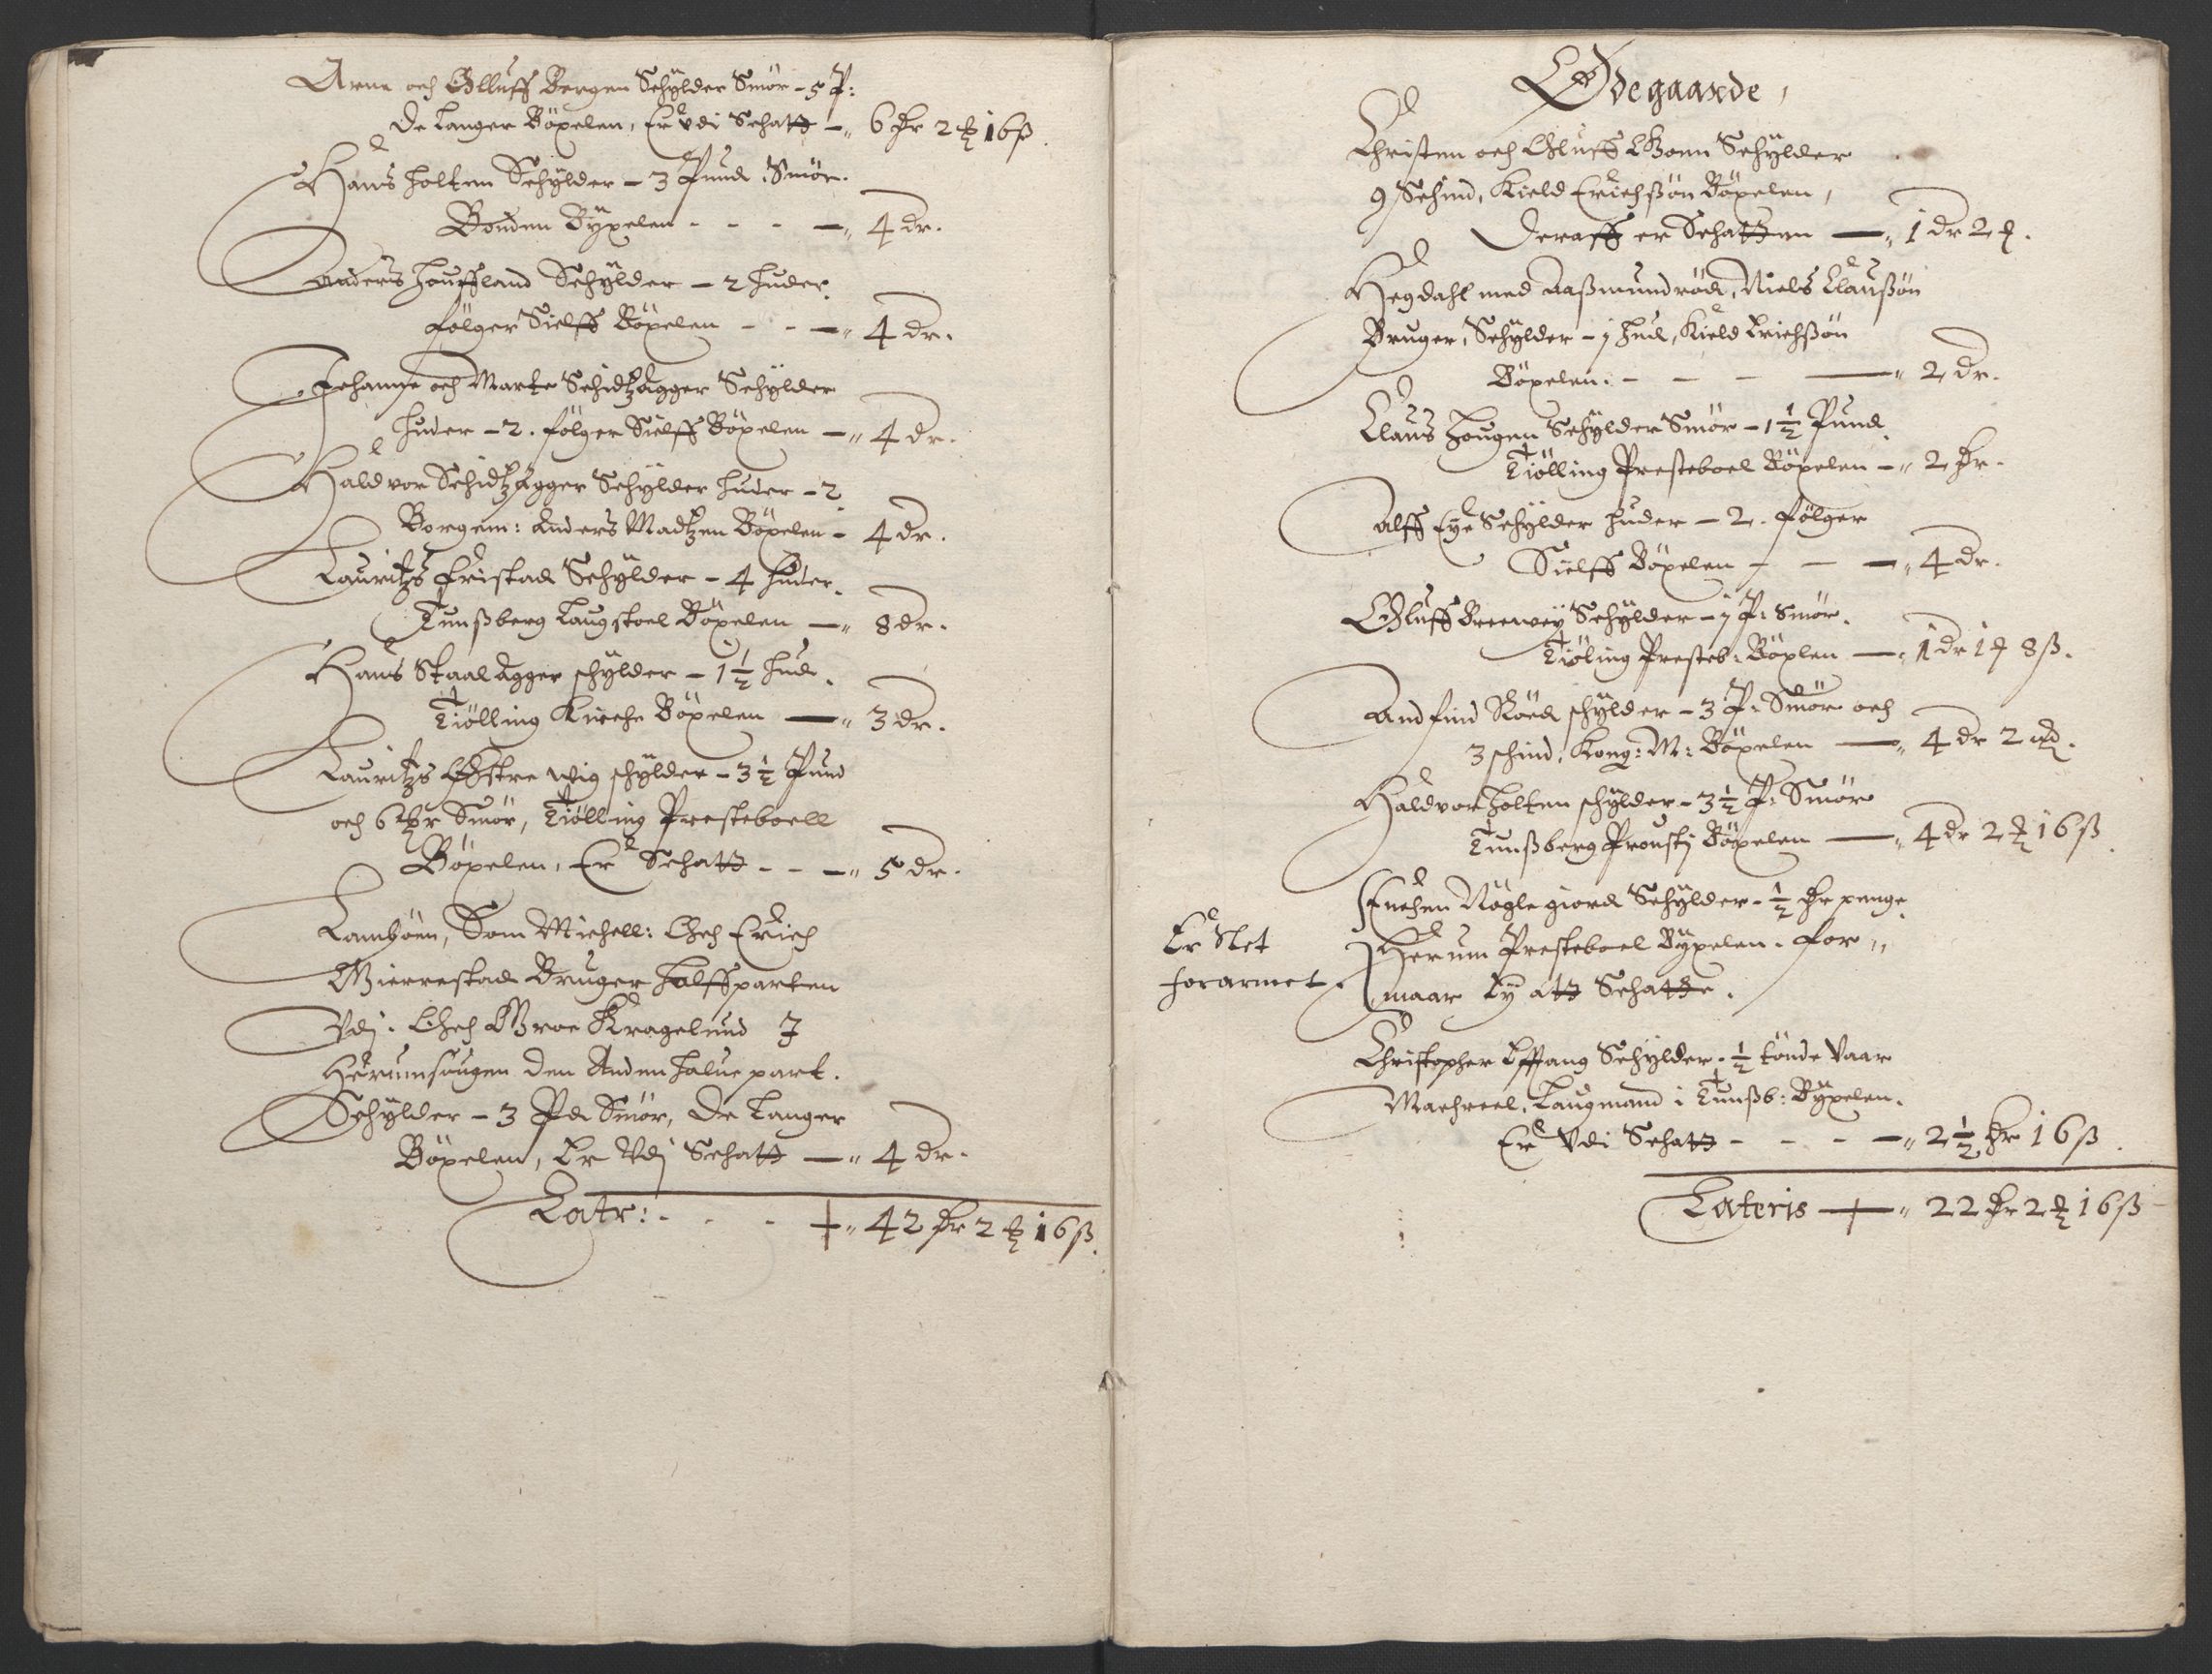 Arne och Olluff Bergen Schÿlder Smör - 5 P:
De Langer Böxelen, Er vdi Schatt - 6 dr 2 ꝗ 16 ß.
Hans Holten Schÿlder - 3 Pund Smör.
Bonden Bÿxelen - - - 4 dr.
Anders Houffland Schÿlder - 2 huder.
følger Sielff Böxelen - - 4 dr.
Johanne och Marte Schidtzagger Schÿlder
huder - 2. følger Sielff Böxelen - 4 dr.
Haldvor Schidtzagger Schÿlder huder - 2
Borgem: Anders Madtzen Böxelen - 4 dr.
Lauritzs Fristad Schÿlder - 4 huder.
Tunßberg Laugstoel Böxelen - 8 dr.
Hans Staalagger schÿlder - 1 ½ hud.
Tiölling Kirche Böxelen - 3 dr.
Lauritzs Østre Wig schÿlder - 3 ½ Pund
och 6 mkr Smör, Tiölling Presteboell
Böxelen, Er Schatt - - 5 dr.
Lamböen, Som Michell: Och Erich
Gierrestad Bruger halffparten
Vdj. Och Groe Kragelund J
Herumsougen den Anden halue part.
Schÿlder - 3 Pd Smör, De Langer
Böxelen, Er Vdj Schatt - 4 dr.
Latr: - - - 42 dr 2 ꝗ 16 ß.
Ödegaarde,
Christen och Oluff Boen Schÿlder
9 Schind, Kield Erichßön Böxelen,
Deraff er Schatten - 1 dr 2 ꝗ.
Hegdahl med Aaßmundröd, Niels Claußön
Bruger, Schÿlder - j hud, Kield Erichßön
Böxelen. - - - 2 dr.
Claus Hougen Schÿlder Smör - 1 ½ Pund
Tiölling Presteboel Böxelen - 2 dr.
Alff Eÿe Schÿlder huder - 2. følger
Sielff Böxelen - - - 4 dr.
Oluff Breewej Schÿlder - j P: Smör.
Tiöling Presteb: Böxlen - 1 dr 1 ꝗ 8 ß.
Andfind Röed schÿlder - 3 P: Smör och
3 schind, Kong: M: Böxelen - 4 dr 2 ꝗ.
Haldvor Holten schÿlder - 3 ½ P: Smör
Tunßberg Proustj Böxelen - 4 dr 2 ꝗ 16 ß.
Er Slet
forarmet.
Enchen Nöglegiord Schÿlder - ½ dr penge
Herum Presteboel Bÿxelen. For,,
maar Eÿ att Schatte.
Christopher Effang Schÿlder. ½ tönde
Laugmand i Tunßb: Bÿxelen.
Er Vdi Schatt - - - 2 ½ dr 16 ß.
Lateris - 22 dr 2 ꝗ 16 ß